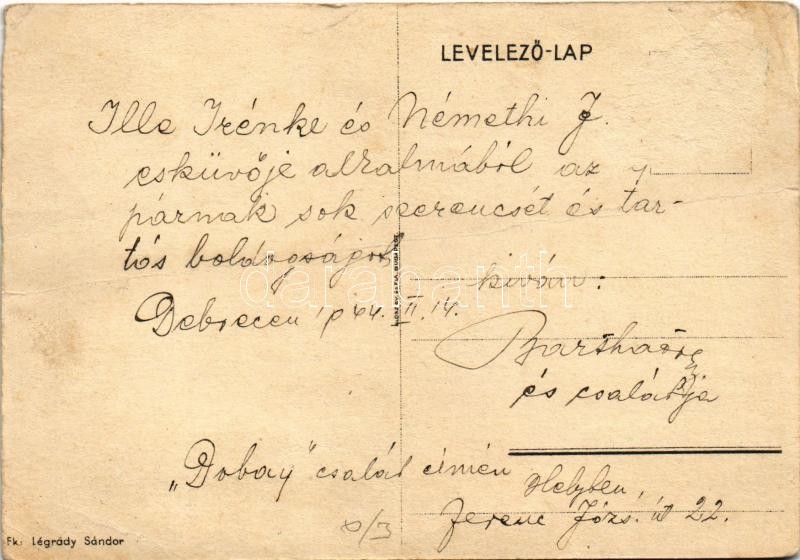 LEVELEZŐ-LAP
Ille Irénke és Némethi J.
esküvője alkalmából az
párnak sok szerencsét és tar-
tós boldogságot
kiván:
Debrecen 944. II. 14.
és családja
„Dobay" család címén
Helyben,
Ferenc Józs. út 22.
8/3
Fk: Légrády Sándor
darabanth